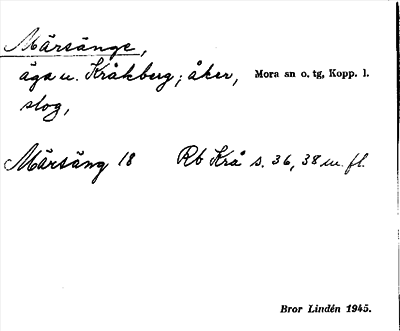 Märsänge,
äga u. Kråkberg; åker, Mora sn o. tg, Kopp. l.
slog,
Märsäng 18 Rb Krå s. 36, 38 m. fl.
Bror Lindén 1945.